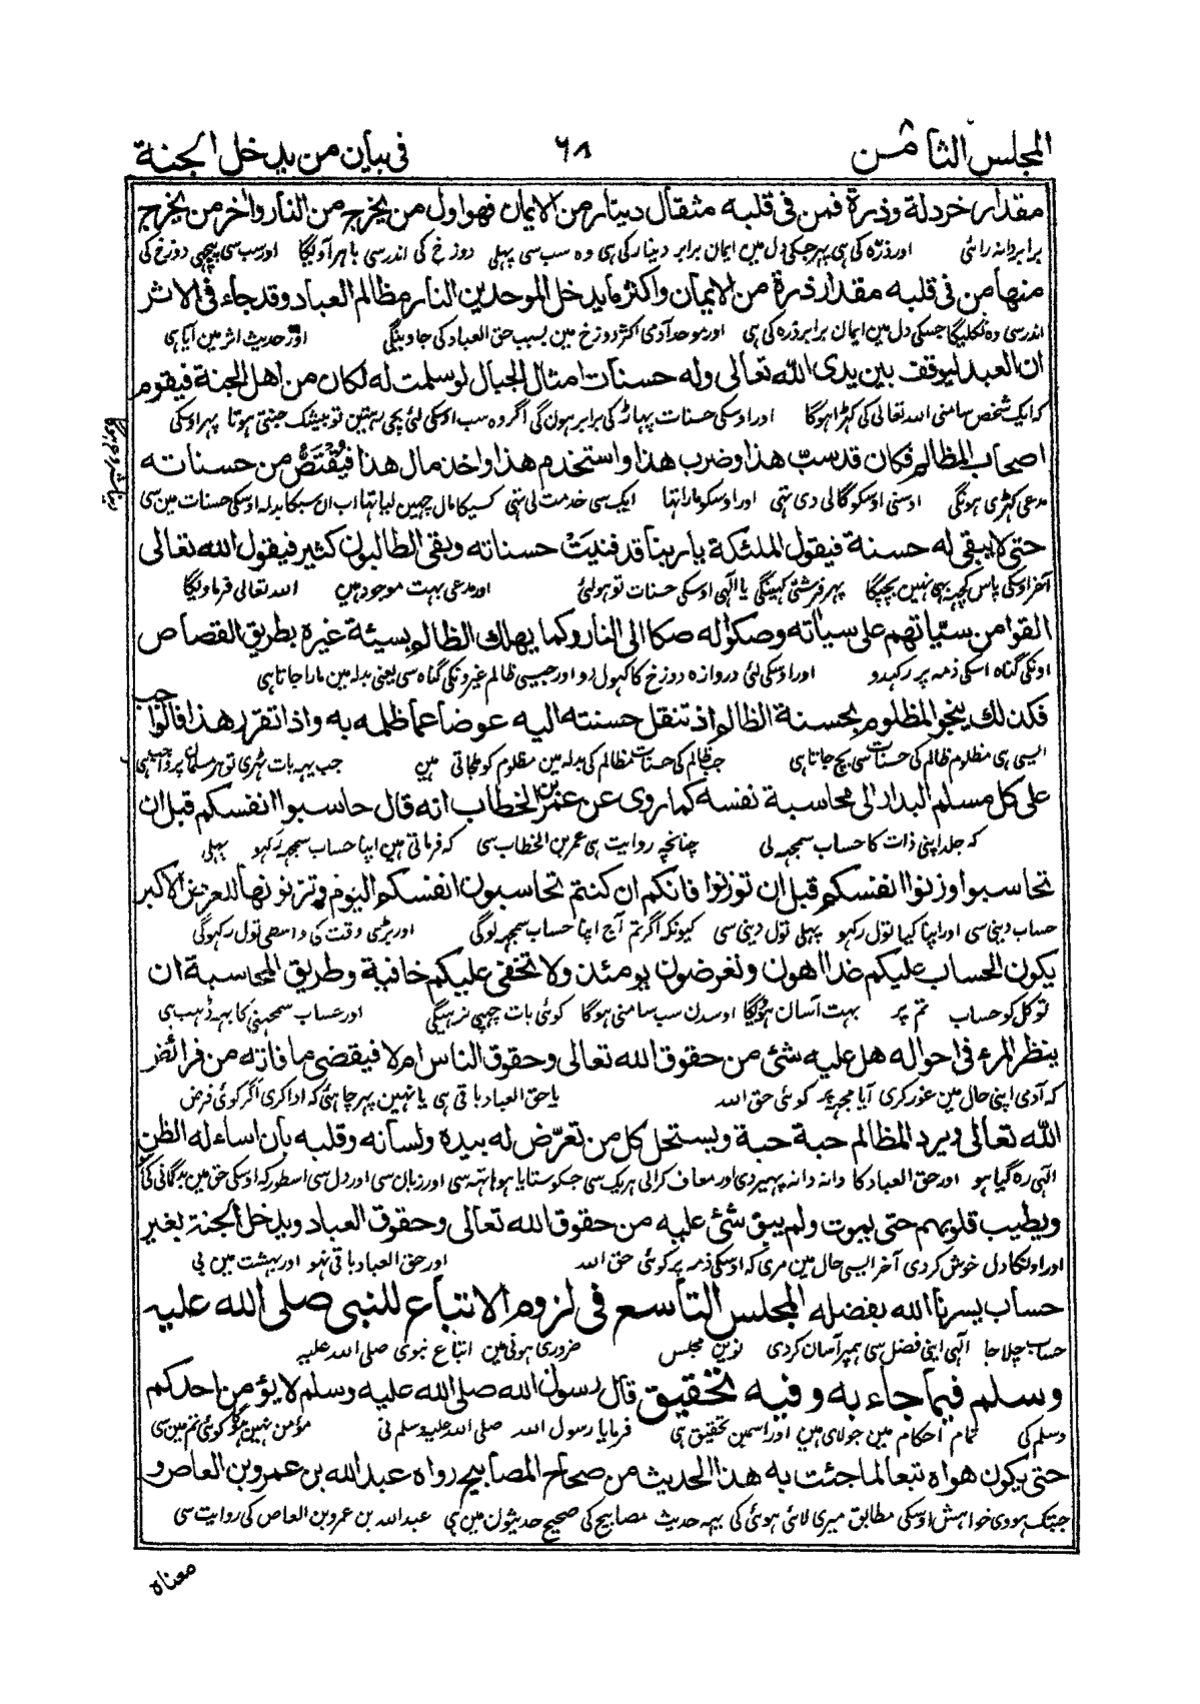 المجلس الثامن ٦٨ فى بيان من يدخل الجنة
مقدار خردلة وذرة فمن فى قلبه مثقال دينار من الايمان فهو اول من يخرج من النار واخر من يخرج
برابر دانہ رائی اور ذرّہ کی ہی پہر جسکی دل مین ایمان برابر دینار کی ہی وہ سب سی پہلی دوزخ کی اندرسی باہر آولیگا اور سب سی پیچھی دوزخ کی
منها من فى قلبه مقدار ذرة من الايمان واكثر ما يدخل الموحدين النار مظالم العباد وقد جاء فى الاثر
اندرسی وہ نکلیگا جسکی دل مین ایمان برابر ذرہ کی ہی اور موحد آدمی اکثر دوزخ مین بسبب حق العباد کی جاوینگی اور حدیث اثر مین آیا ہی
ان العبد ليوقف بين يدى الله تعالى وله حسنات امثال الجبال لو سلمت له لكان من اهل الجنة فيقوم
کہ ایک شخص سامنی اللہ تعالی کی کہڑا ہوگا اور اوسکی حسنات پہاڑ کی برابر ہون گی اگر وہ سب اوسکی لئی بچی رہتین تو بیشک جنتی ہوتا پہر اوسکی
اصحاب المظالم فكان قد سب هذا وضرب هذا واستخدم هذا واخذ مال هذا فيقتص من حسناته
مدعی کہڑی ہونگی اوسنی اوسکو گالی دی تہی اور اوسکو مارا تہا ایک سی خدمت لی تہی کسیکا مال چہین لیا تہا اب ان سبکا بدلہ اوسکی حسنات مین سی
حتى لا يبقى له حسنة فيقول الملئكة يا ربنا قد فنيت حسناته وبقى الطالبون كثير فيقول الله تعالى
آخر اوسکی پاس کچہہ بہی نہین بچیگا پہر فرشتی کہینگی یا الہی اوسکی حسنات تو ہولئی اور مدعی بہت موجود ہین اللہ تعالی فرماویگا
القوا من سيئاتهم على سيأته وصكوا له صكا الى النار وكما يهلك الظالم بسيئة غيره بطريق القصاص
اونکی گناہ اسکی ذمہ پر رکہدو اور اوسکی لئی دروازہ دوزخ کا کہول دو اور جیسی ظالم غیرونکی گناہ سی یعنی بدلہ مین مارا جاتا ہی
فكذلك ينجو المظلوم بحسنة الظالم اذ تنقل حسنته اليه عوضا عما ظلمه به واذا تقرر هذا فالواجب
ایسی ہی مظلوم ظالم کی حسنات سی بچ جاتا ہی جب ظالم کی حسنات مظالم کی بدلہ مین مظلوم کو ملجاتی ہین جب یہہ بات ٹہری تو ہر مسلمان پر واجب ہی
على كل مسلم البدار الى محاسبة نفسه كما روى عن عمر بن الخطاب انه قال حاسبوا انفسكم قبل ان
کہ جلد اپنی ذات کا حساب سمجہہ لی چنانچہ روایت ہی عمر بن الخطاب سی کہ فرماتی ہین اپنا حساب سمجہہ رکہو پہلی
تحاسبوا وزنوا انفسكم قبل ان توزنوا فانكم ان كنتم تحاسبون انفسكم اليوم وتزنونها للعرض الاكبر
حساب دینی سی اور اپنا کیا تول رکہو پہلی تول دینی سی کیونکہ اگر تم آج اپنا حساب سمجہہ لوگی اور بڑی وقت کی واسطی تول رکہوگی
يكون الحساب عليكم غدا اهون وتعرضون يومئذ ولا تخفى عليكم خافية وطريق المحاسبة ان
توکل کو حساب تم پر بہت آسان ہولیگا اوسدن سب سامنی ہوگا کوئی بات چہپی نرہیگی اور حساب سمجہنی کا یہہ ڈہب ہی
ينظر المرء فى احواله هل عليه شئ من حقوق الله تعالى وحقوق الناس ام لا فيقضى ما فاته من فرائض
کہ آدمی اپنی حال مین غور کری آیا مجہپر کوئی حق اللہ یا حق العباد باقی ہی یا نہین پہر چاہئی کہ ادا کری اگر کوئی فرض
الله تعالى ويرد المظالم حبة حبة ويستحل كل من تعرض له بيده ولسانه وقلبه بأن اساء له الظن
الہی رہ گیا ہو اور حق العباد کا دانہ دانہ پہیر دی اور معاف کرالی ہریک سی جسکو ستایا ہو ہاتہہ سی اور زبان سی اور دل سی اسطور کہ اوسکی حق مین بدگمانی کی
ويطيب قلوبهم حتى يموت ولم يبق شئ عليه من حقوق الله تعالى وحقوق العباد ويدخل الجنة بغير
اور اونکا دل خوش کردی آخر ایسی حال مین مری کہ اوسکی ذمہ پر کوئی حق اللہ اور حق العباد باقی نہو اور بہشت مین بی
حساب يسرنا الله بفضله المجلس التاسع فى لزوم الاتباع للنبى صلى الله عليه
حساب چلا جا الہی اپنی فضل سی ہمپر آسان کردی نوین مجلس ضروری ہونی مین اتباع نبوی صلی اللہ علیہ
وسلم فيما جاء به وفيه تحقيق قال رسول الله صلى الله عليه وسلم لا يؤمن احدكم
وسلم کی تمام احکام مین جو لائی ہین اور اسمین تحقیق ہی فرمایا رسول اللہ صلی اللہ علیہ وسلم نی مؤمن نہین ہوگا کوئی تم مین سی
حتى يكون هواه تبعا لما جئت به هذا الحديث من صحاح المصابيح رواه عبدالله بن عمرو بن العاص و
جبتک ہووی خواہش اوسکی مطابق میری لائی ہوئی کی یہہ حدیث مصابیح کی صحیح حدیثون مین ہی عبداللہ بن عمرو بن العاص کی روایت سی
معناه